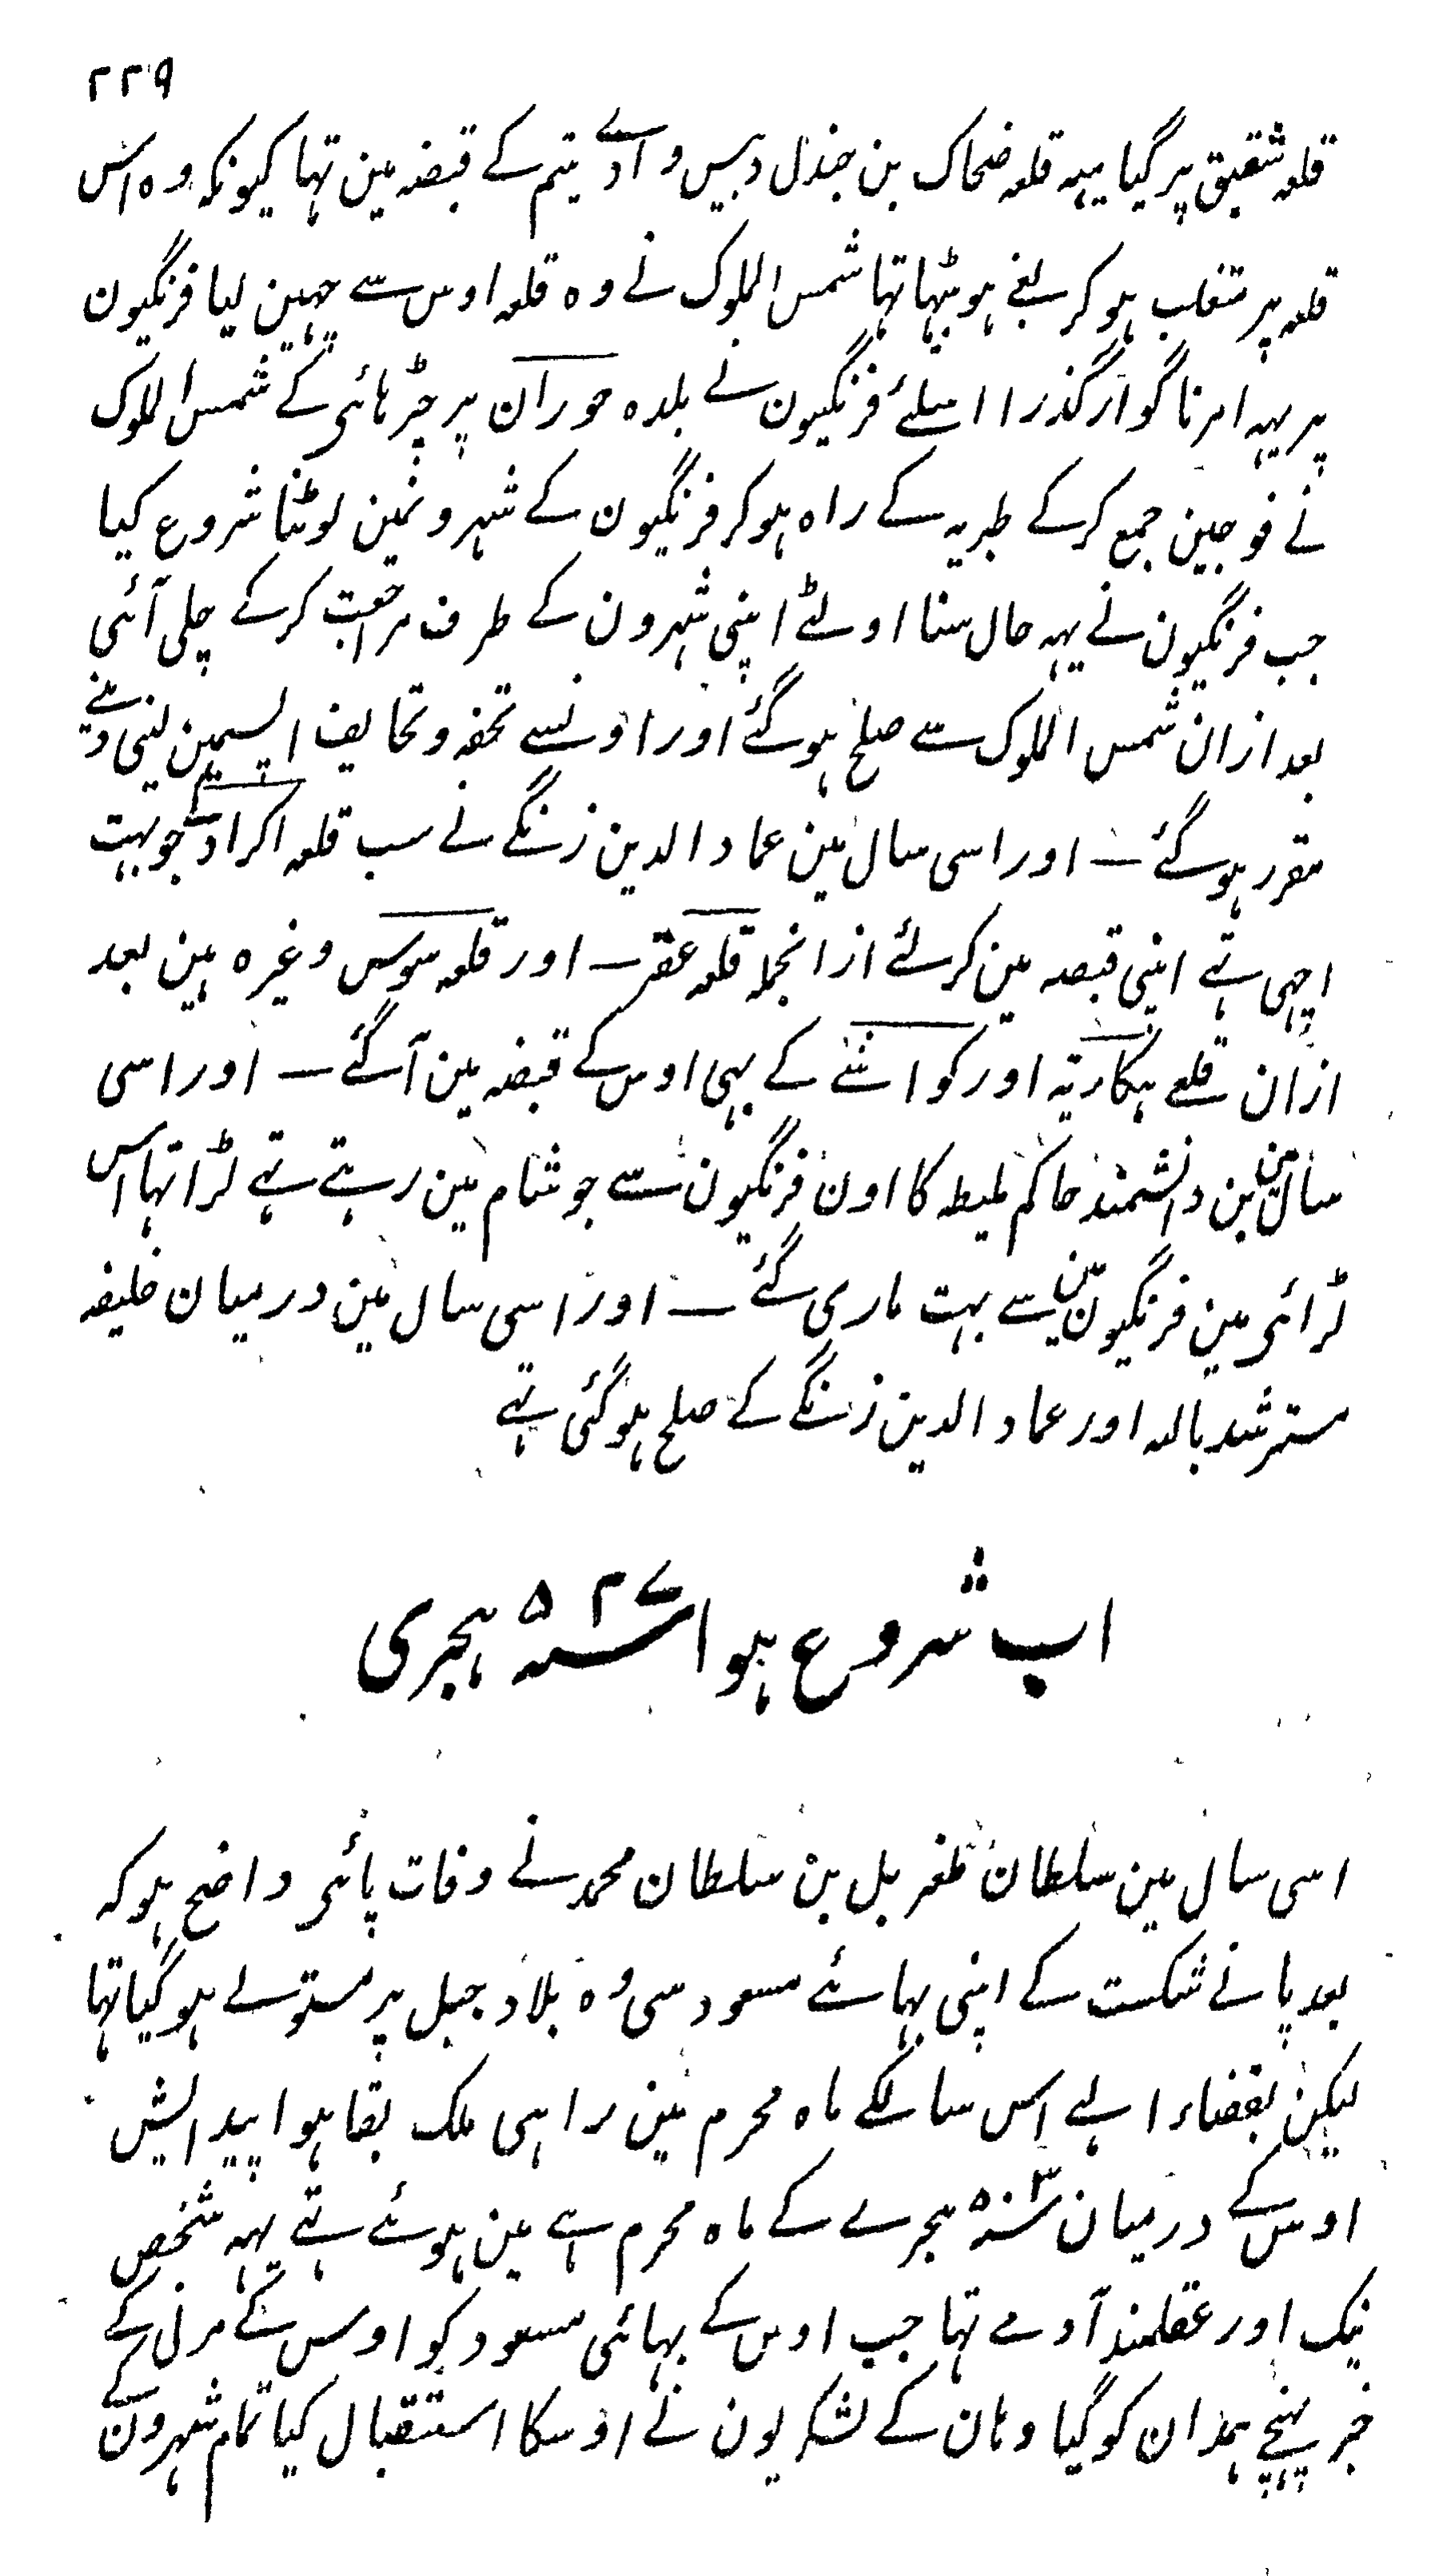 ٢٢٩
قلعہ شقیق پر گیا یہہ قلعہ ضحاک بن جندل رئیس وادے یتم کے قبضہ مین تہا کیونکہ وہ اس
قلعہ پر متغلب ہو کر بیٹہا تہا شمس الملوک نے وہ قلعہ اوس سے چہین لیا فرنگیون
پر یہہ امر ناگوار گذرا اسلئے فرنگیون نے بلدہ حوران پر چڑہائی کے شمس الملوک
نے فوجین جمع کرکے طبریہ کے راہ ہو کر فرنگیون کے شہرونمین لوٹنا شروع کیا
جب فرنگیون نے یہہ حال سنا اولٹے اپنی شہرون کے طرف مراجعت کرکے چلی آئی
بعد ازان شمس الملوک سے صلح ہو گئے اور اونسے تحفہ و تحایف اپسمین لینی دینے
مقرر ہو گئے ــ اور اسی سال مین عماد الدین زنگے نے سب قلعہ اکراد کے جو بہت
اچہی تہے اپنی قبضہ مین کرلئے ازانجملہ قلعہ عقر ــ اور قلعہ سوس وغیرہ ہین بعد
ازان قلعے ہکاریہ اور کواشے کے بہی اوس کے قبضہ مین آگئے ــ اور اسی
سال مین بن دانشمند حاکم ملیطہ کا اون فرنگیون سے جو شام مین رہتے تہے لڑا تہا اس
لڑائی مین فرنگیون مین سے بہت ماری گئے ــ اور اسی سال مین درمیان خلیفہ
مسترشد بالله اور عماد الدین زنگے کے صلح ہو گئی تہے
اب شروع ہوا سنہ ۵۲۷ ہجری
اسی سال مین سلطان طغربل بن سلطان محمد نے وفات پائی واضح ہو کہ
بعد پانے شکست کے اپنی بہائے مسعود سی وہ بلاد جبل پر مستولے ہو گیا تہا
لیکن بقضاء الہے اس سالکے ماہ محرم مین راہی ملک بقا ہوا پیدایش
اوس کے درمیان سنہ ۵۰۳ ہجرے کے ماہ محرم ہے مین ہوئے تہے یہہ شخص
نیک اور عقلمند آدمے تہا جب اوس کے بہائی مسعود کو اوس کے مرنی کے
خبر پہنچے ہمدان کو گیا وہان کے لشکریون نے اوسکا استقبال کیا تمام شہرون کے